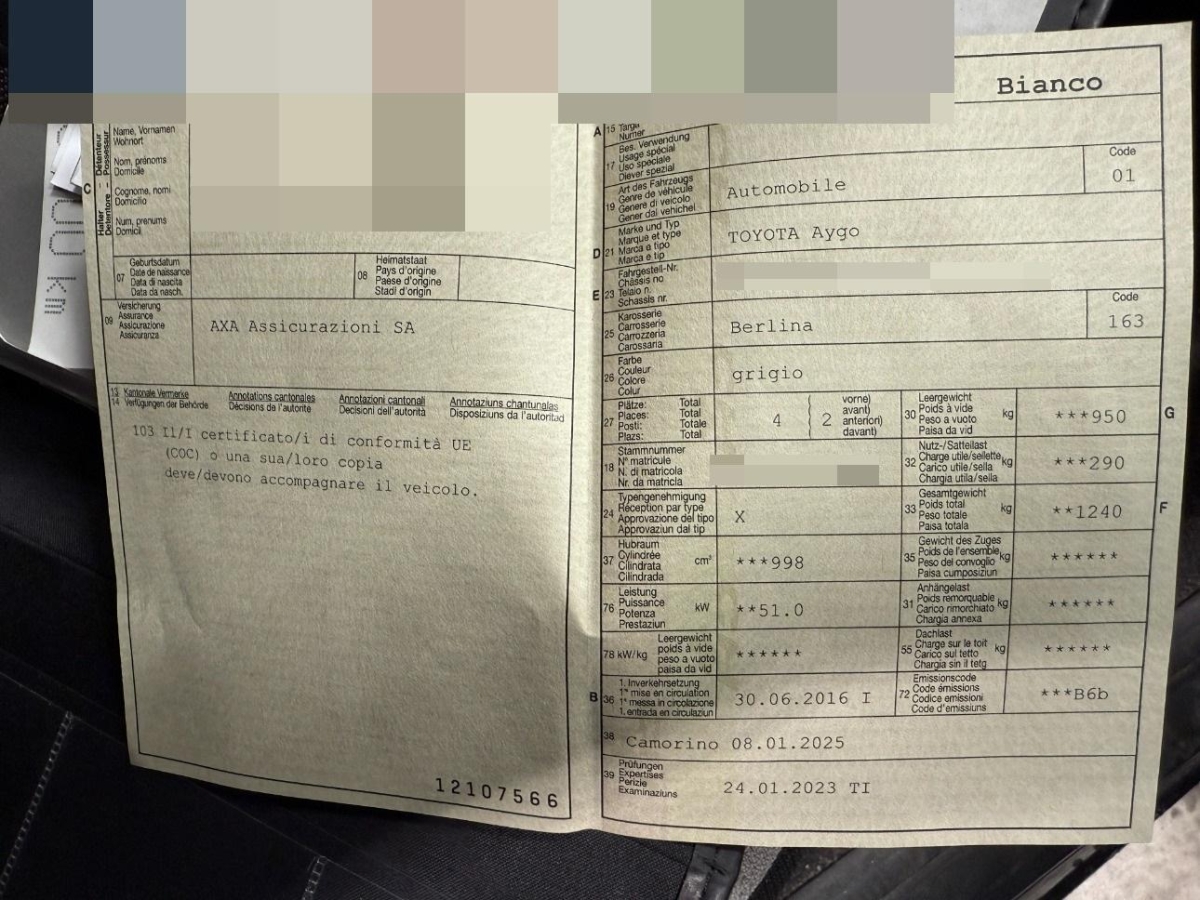 Bianco
A 15 Targa
Numer
17 Bes. Verwendung
Usage spécial
Uso speciale
Diever spezial
19 Art des Fahrzeugs
Genre de véhicule
Genere di veicolo
Gener dal vehichel
Automobile
Code
01
D 21 Marke und Typ
Marque et type
Marca e tipo
Marca e tip
TOYOTA Aygo
E 23 Fahrgestell-Nr.
Châssis no
Telaio n.
Schassis nr.
25 Karosserie
Carrosserie
Carrozzeria
Carossaria
Berlina
Code
163
26 Farbe
Couleur
Colore
Colur
grigio
27 Plätze: Total
Places: Total
Posti: Totale
Plazs: Total
4 2
vorne)
avant)
anteriori)
davant)
30 Leergewicht
Poids à vide
Peso a vuoto
Paisa da vid
kg ***950 G
18 Stammnummer
N° matricule
N. di matricola
Nr. da matricla
32 Nutz-/Sattellast
Charge utile/sellette
Carico utile/sella
Chargia utila/sella
kg ***290
24 Typengenehmigung
Réception par type
Approvazione del tipo
Approvaziun dal tip
X
33 Gesamtgewicht
Poids total
Peso totale
Paisa totala
kg **1240 F
37 Hubraum
Cylindrée
Cilindrata
Cilindrada
cm³ ***998
35 Gewicht des Zuges
Poids de l'ensemble
Peso del convoglio
Paisa cumposiziun
kg ******
76 Leistung
Puissance
Potenza
Prestaziun
kW **51.0
31 Anhängelast
Poids remorquable
Carico rimorchiato
Chargia annexa
kg ******
78 kW/kg Leergewicht
poids à vide
peso a vuoto
paisa da vid
******
55 Dachlast
Charge sur le toit
Carico sul tetto
Chargia sin il tetg
kg ******
B 36 1. Inverkehrsetzung
1re mise en circulation
1a messa in circolazione
1. entrada en circulaziun
30.06.2016 I
72 Emissionscode
Code émissions
Codice emissioni
Code d'emissiuns
***B6b
38 Camorino 08.01.2025
39 Prüfungen
Expertises
Perizie
Examinaziuns
24.01.2023 TI
C
Halter – Détenteur
Detentore – Possessur
Name, Vornamen
Wohnort
Nom, prénoms
Domicile
Cognome, nomi
Domicilio
Num, prenums
Domicil
07 Geburtsdatum
Date de naissance
Data di nascita
Data da nasch.
08 Heimatstaat
Pays d'origine
Paese d'origine
Stadi d'origin
09 Versicherung
Assurance
Assicurazione
Assicuranza
AXA Assicurazioni SA
13 Kantonale Vermerke Annotations cantonales Annotazioni cantonali Annotaziuns chantunalas
14 Verfügungen der Behörde Décisions de l'autorité Decisioni dell'autorità Disposiziuns da l'autoritad
103 Il/I certificato/i di conformità UE
(COC) o una sua/loro copia
deve/devono accompagnare il veicolo.
12107566